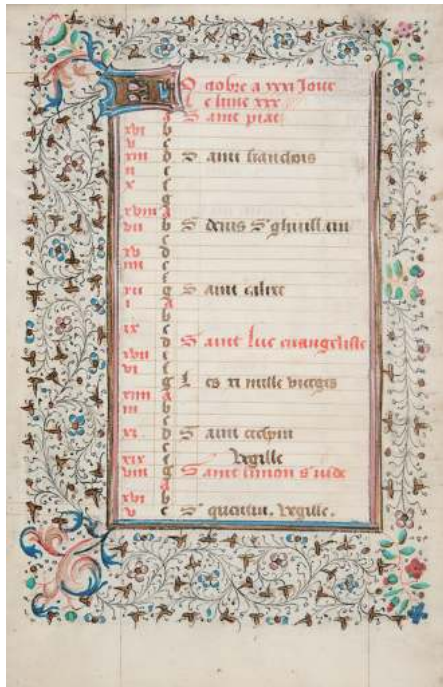 Octobre a xxxi Jour
Le lune xxx
a Saint piat
xvi b
v c
xiii d Saint franchois
ii e
x f
g
xviii A
vii b S denis S ghuillain
c
xv d
iiii e
f
xii g Saint calixte
i A
b
ix c
d Saint Luc euangeliste
xvii e
vi f
g Les xi mille vierges
xiiii A
iii b
c
xi d Saint crespin
e
xix f Vegille
viii g Saint simon s iude
a
xvi b
v c S quentin. Vegille.